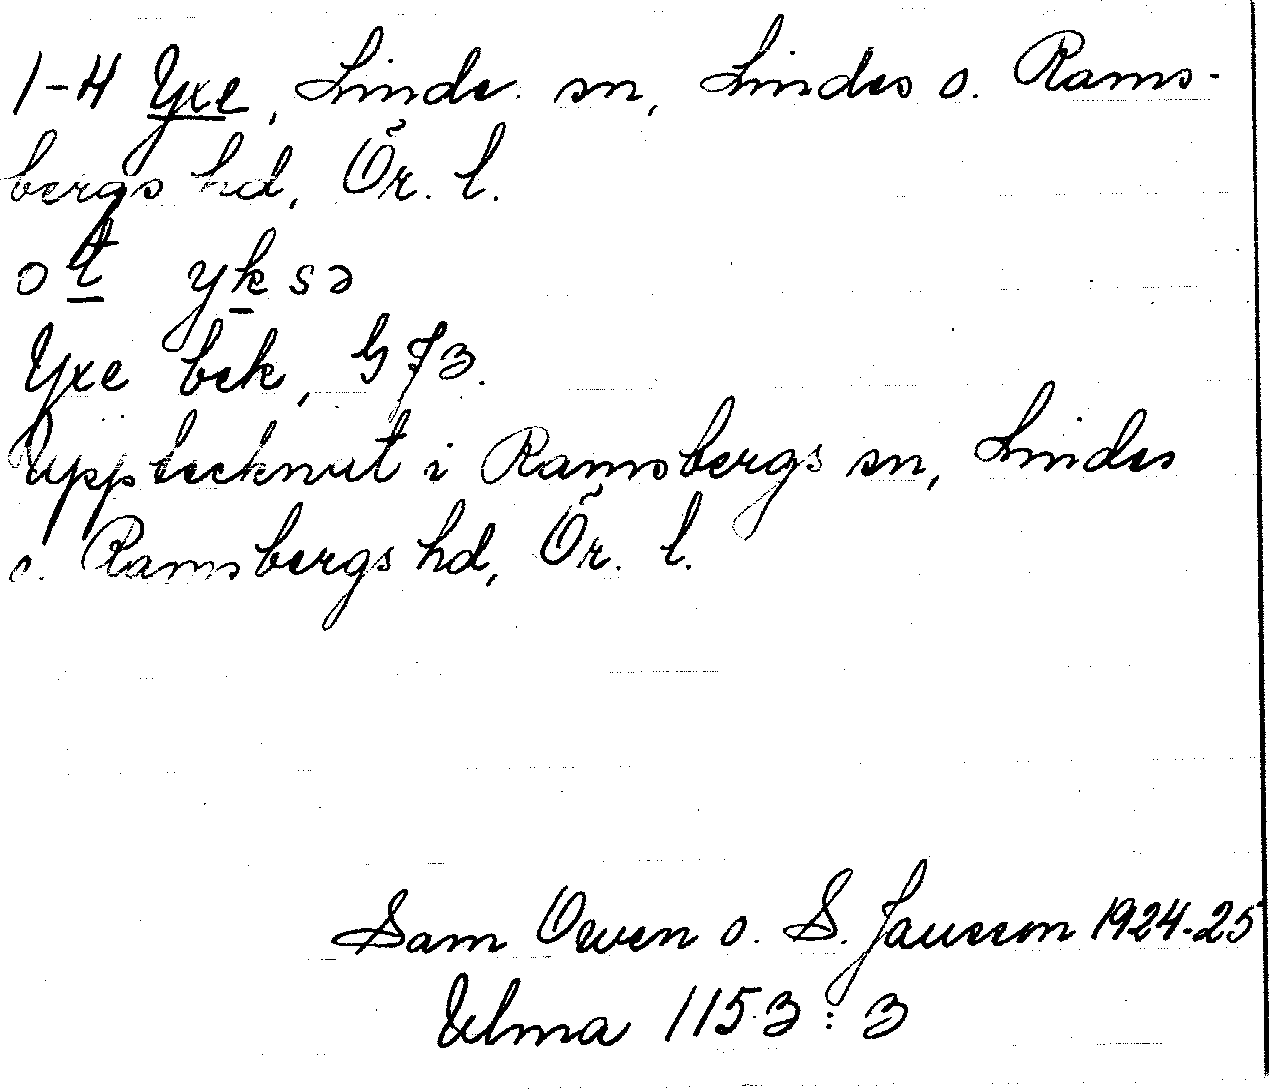 1-4 Yxe, Linde sn, Lindes o. Rams-
bergs hd, Ör. l.
ot yksə
Yxe bek, G 73.
Upptecknat i Ramsbergs sn, Lindes
o. Ramsbergs hd, Ör. l.
Sam Owen o. S. Jansson 1924-25
Ulma 1153:3